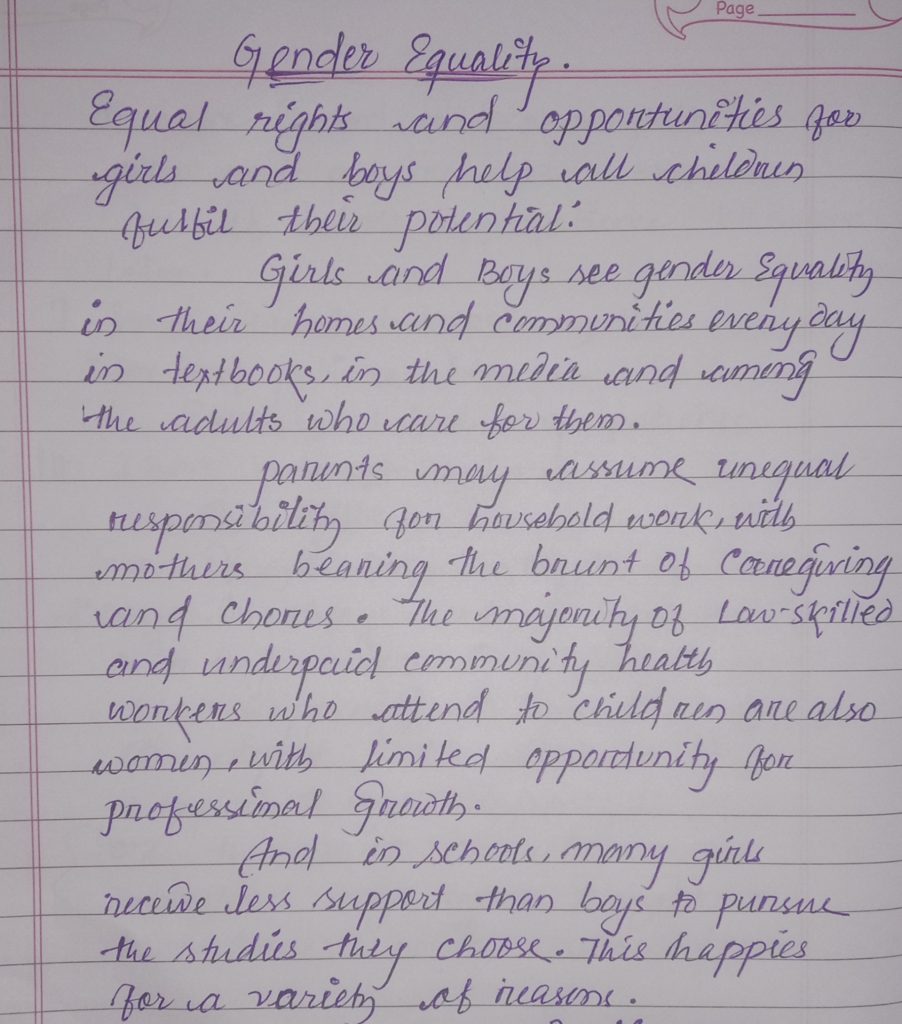 Page
Gender Equality.
Equal rights and opportunities for
girls and boys help all children
fulfil their potential.
Girls and Boys see gender Equality
in their homes and communities everyday
in textbooks, in the media and among
the adults who care for them.
parents may assume unequal
responsibility for household work, with
mothers bearing the brunt of Caregiving
and Chores. The majority of Low-skilled
and underpaid community health
workers who attend to children are also
women, with limited opportunity for
professional Growth.
And in schools, many girls
receive less support than boys to pursue
the studies they choose. This happies
for a variety of reasons.